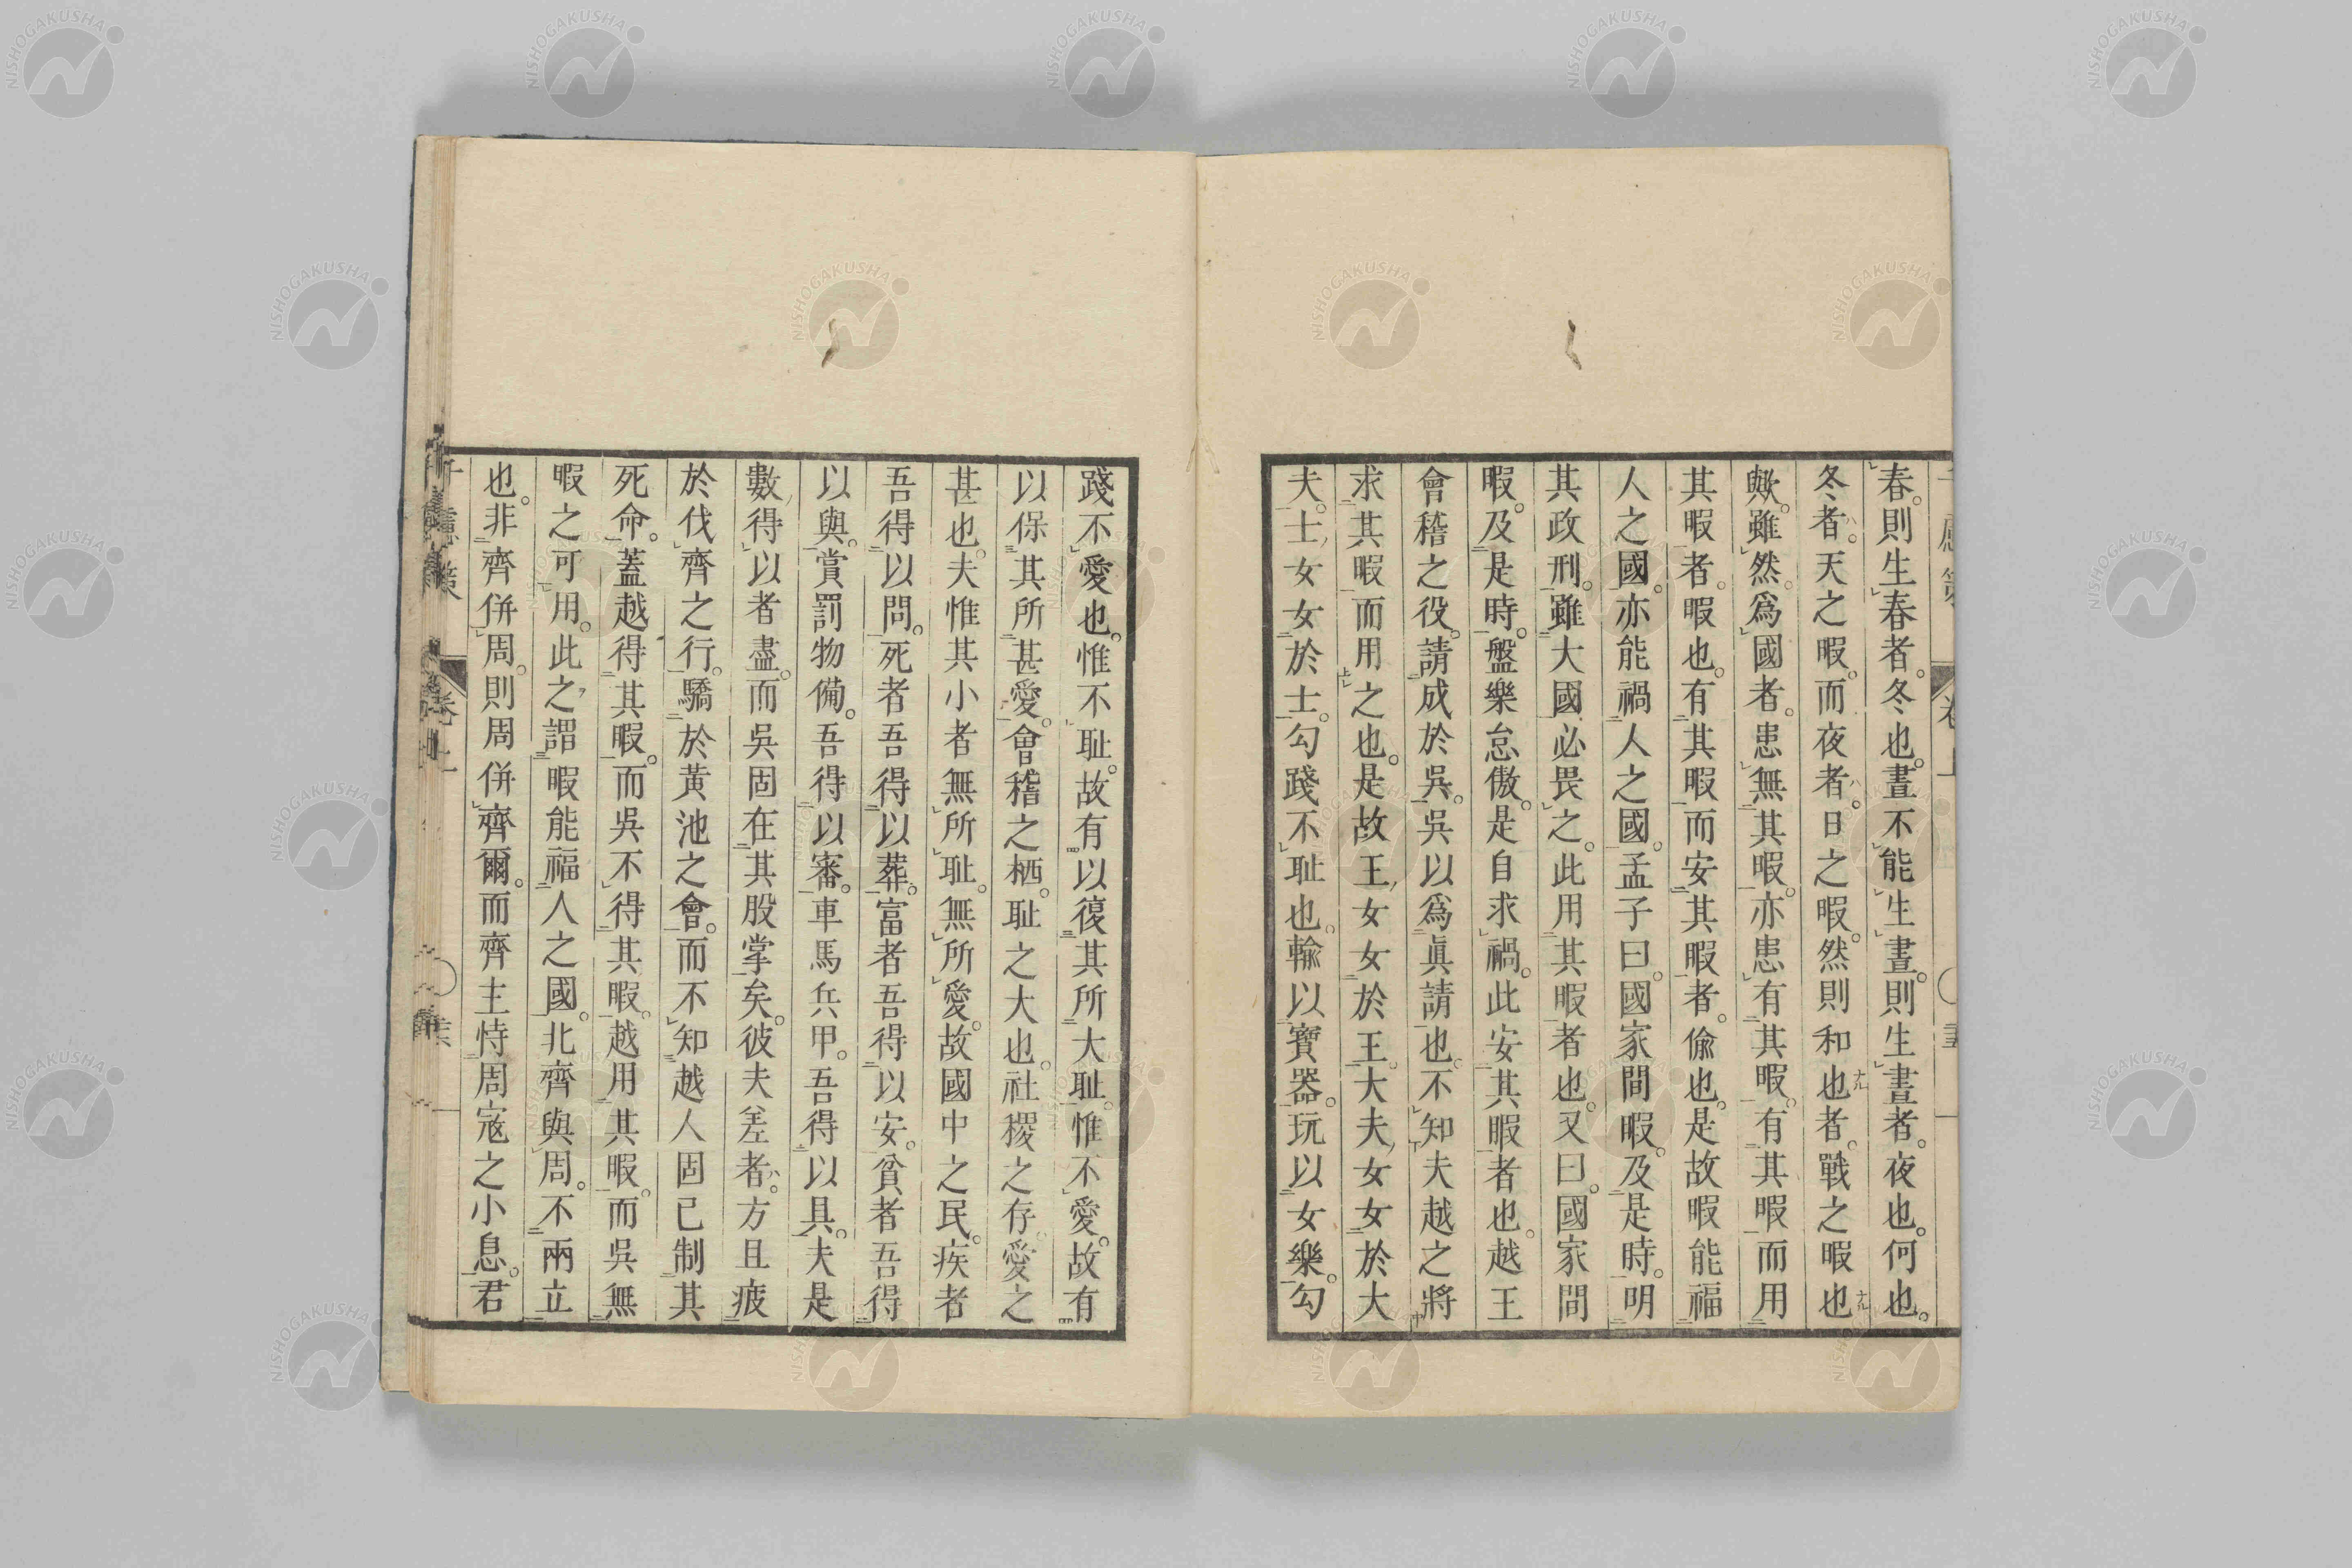 春。則生春者。冬也。晝不能生晝。則生晝者。夜也。何也。
冬者。天之暇。而夜者。日之暇。然則和也者。戰之暇也
歟。雖然。爲國者。患無其暇。亦患有其暇。有其暇而用
其暇者。暇也。有其暇而安其暇者。偸也。是故暇能福
人之國。亦能禍人之國。孟子曰。國家間暇。及是時。明
其政刑。雖大國必畏之。此用其暇者也。又曰。國家間
暇。及是時。盤樂怠傲。是自求禍。此安其暇者也。越王
會稽之役。請成於吳。吳以爲眞請也。不知夫越之將
求其暇而用之也。是故王女女於王。大夫女女於大
夫。士女女於士。勾踐不耻也。輸以寶器。玩以女樂。勾
踐不愛也。惟不耻。故有以復其所大耻。惟不愛。故有
以保其所甚愛。會稽之栖。耻之大也。社稷之存。愛之
甚也。夫惟其小者無所耻。無所愛。故國中之民。疾者
吾得以問。死者吾得以葬。富者吾得以安。貧者吾得
以與。賞罰物備。吾得以審。車馬兵甲。吾得以具。夫是
數得以者盡。而吳固在其股掌矣。彼夫差者。方且疲
於伐齊之行。驕於黃池之會。而不知越人固已制其
死命。蓋越得其暇。而吳不得其暇。越用其暇。而吳無
暇之可用。此之謂暇能福人之國。北齊與周。不兩立
也。非齊併周。則周併齊爾。而齊主恃周寇之小息。君
卷上
NISHOGAKUSHA